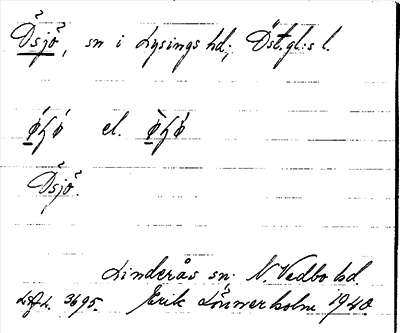 Ödsjö, sn i Lysings hd; Östgl:s l.
el.
Ödsjö.
Linderås sn; N. Vedbo hd.
3695. Erik Lönnerholm 1940